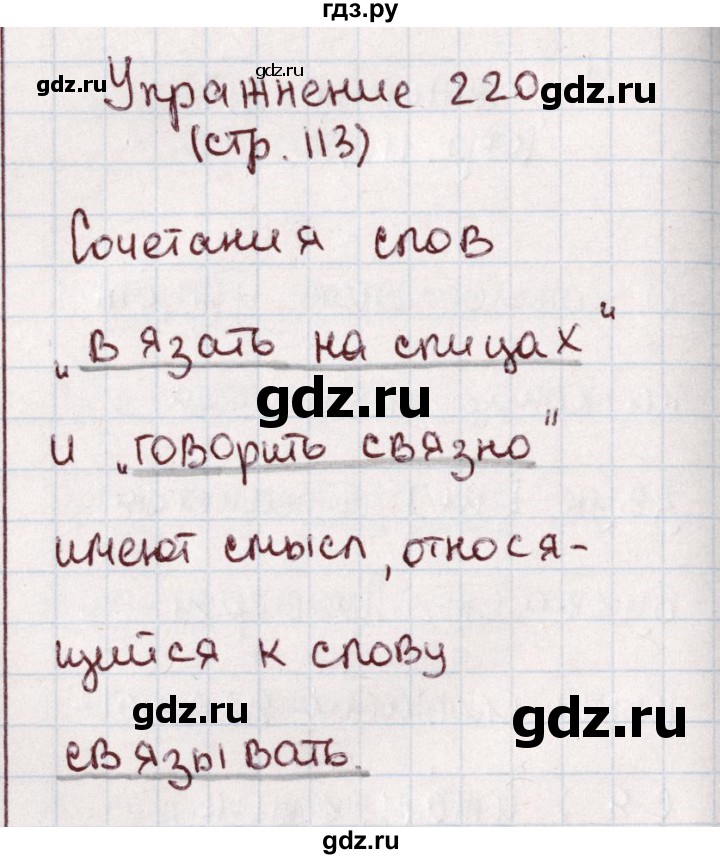 гдз.ру
gdz.ru
gdz.ru
Упражнение 220
gdz.ru
(стр. 113)
Сочетания слов
„вязать на спицах"
gdz.ru
и „говорить связно"
имеют смысл, относя-
щийся к слову
gdz.ru
gdz.ru
связывать.
gdz.ru